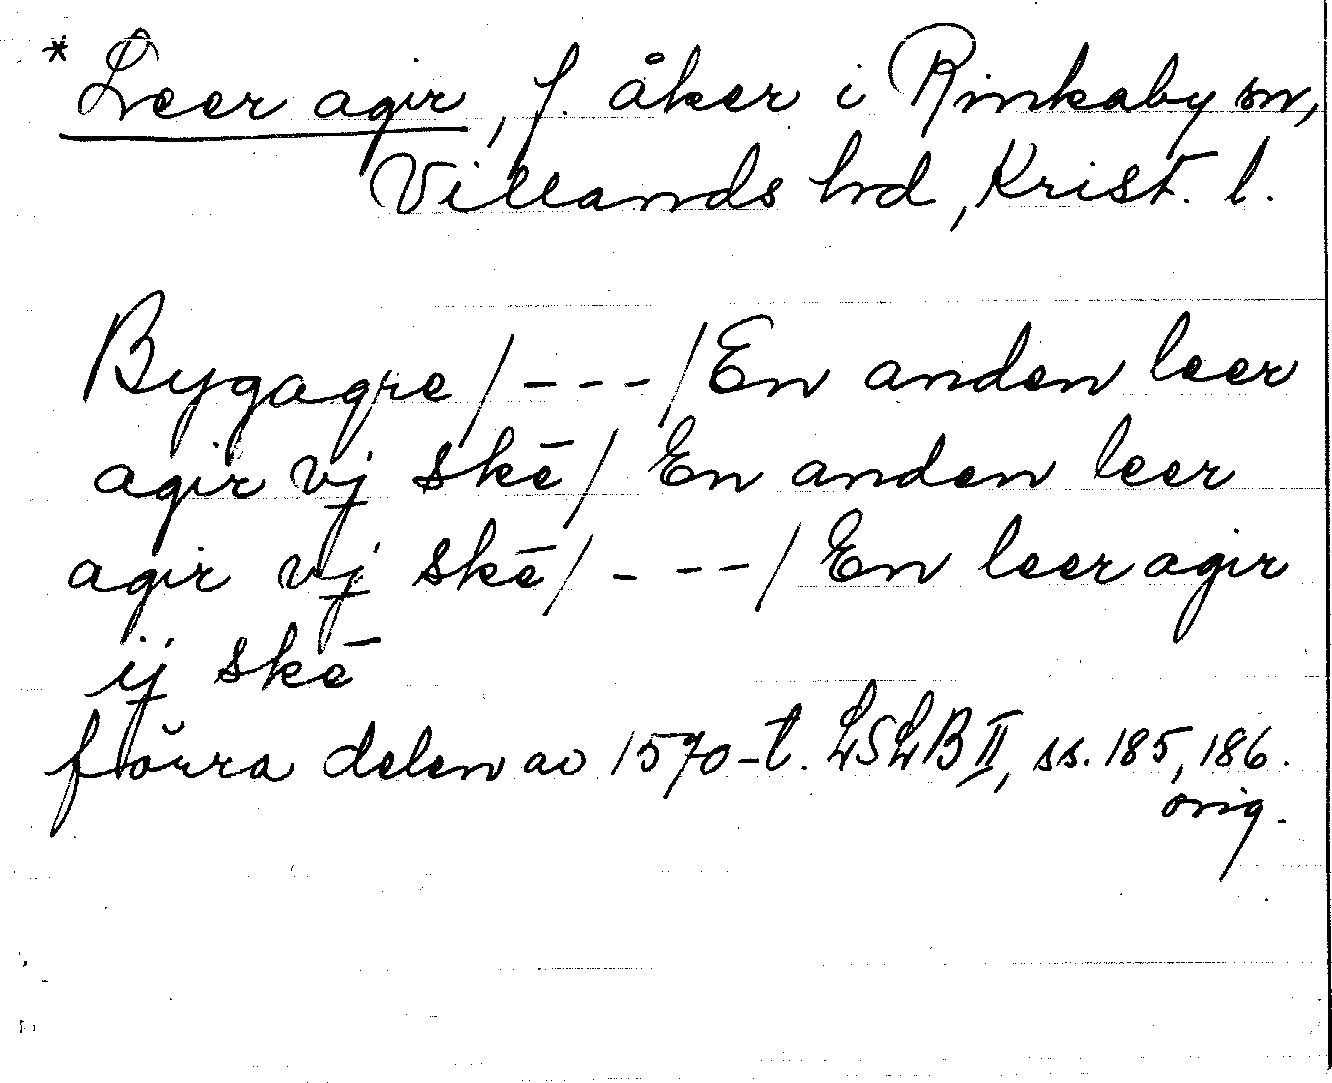 * Leer agir, f. åker i Rinkaby sn,
Villands hd, Krist. l.
Bygagre / - - - / En anden leer
agir vj skē / En anden leer
agir vj skē / - - - / En leer agir
ij skē
förra delen av 1570-t. LSLB II, ss. 185, 186.
orig.